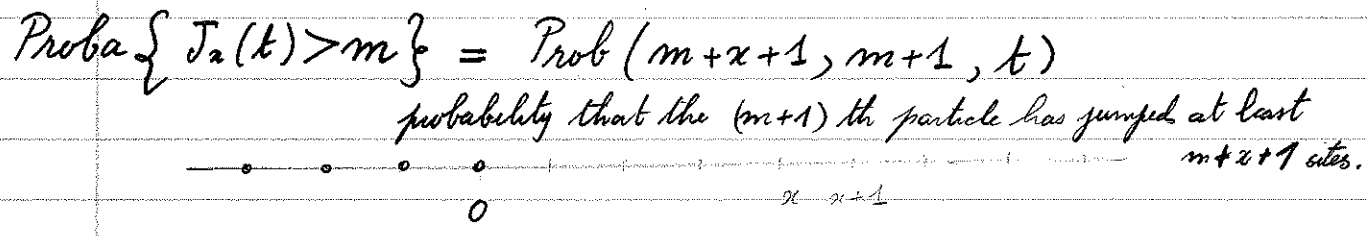 Proba { Jx(t) > m } = Prob (m+x+1, m+1, t)
probability that the (m+1) th particle has jumped at least
m+x+1 sites.
x x+1
0